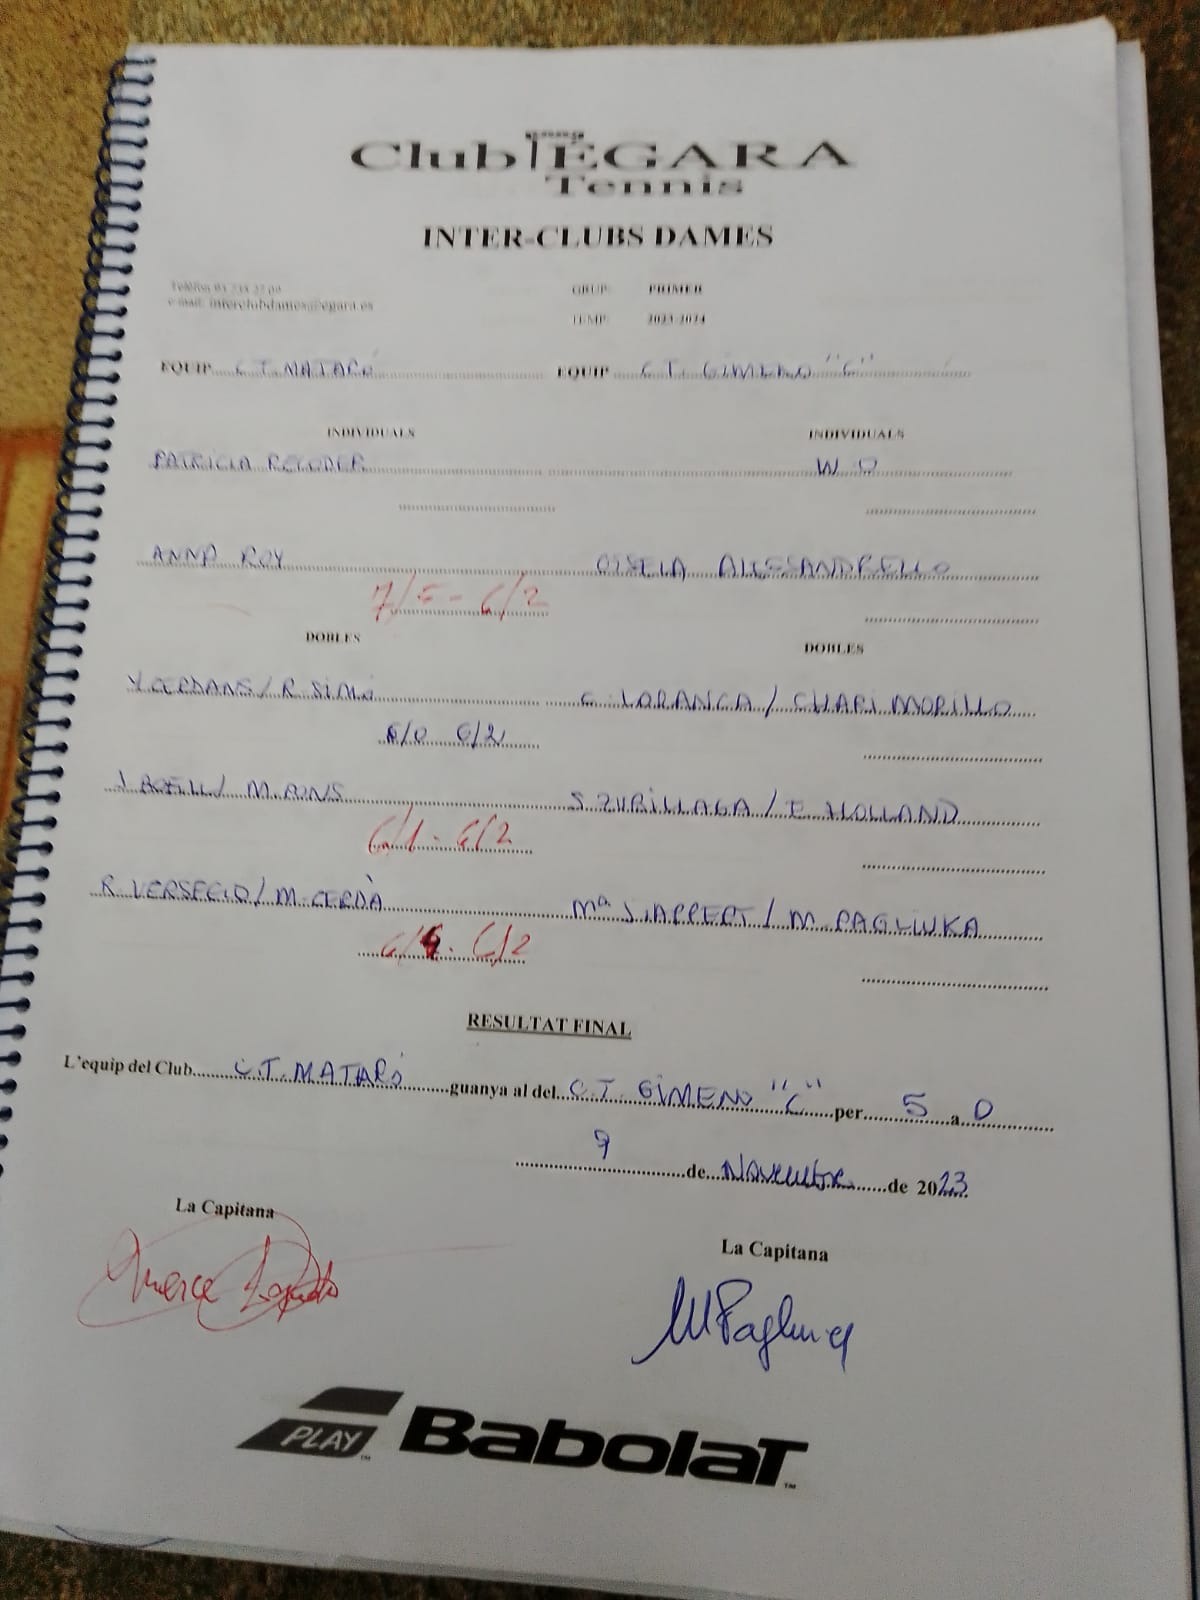 Club EGARA
Tennis
INTER-CLUBS DAMES
Telèfon
e-mail: interclubdames@egara.es
GRUP: PRIMER
TEMP: 2023-2024
EQUIP C.T. MATARÓ EQUIP C.T. GIMENO "C"
INDIVIDUALS INDIVIDUALS
PATRICIA RECODER W O
ANNA ROY GISELA ALESSANDRELLO
7/5 - 6/2
DOBLES DOBLES
Y. CERDANS / R. SIMÓ C. LORANCA / CHARI MORILLO
6/0 6/2
M. PONS S. ZURILLAGA / E. HOLLAND
6/1 - 6/2
R. VERSECIO / M. CERDÀ Mª S. / M. PAGLIUKA
6/4 - 6/2
RESULTAT FINAL
L'equip del Club C.T. MATARÓ guanya al del C.T. GIMENO "C" per 5 a 0
9 de Novembre de 2023
La Capitana La Capitana
PLAY Babolat